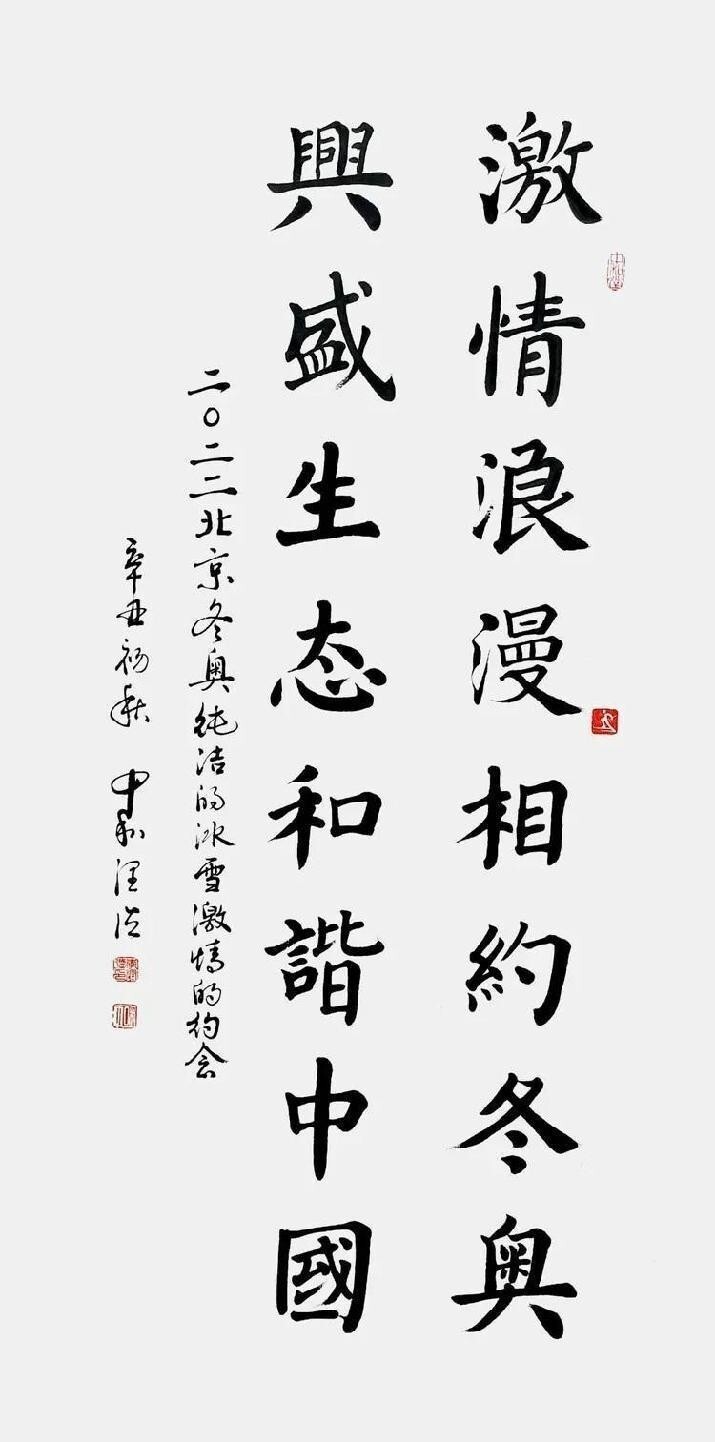 激情浪漫相約冬奥
興盛生态和諧中國
二〇二二北京冬奥純洁的冰雪激情的约会
辛丑初秋 中和汪洪